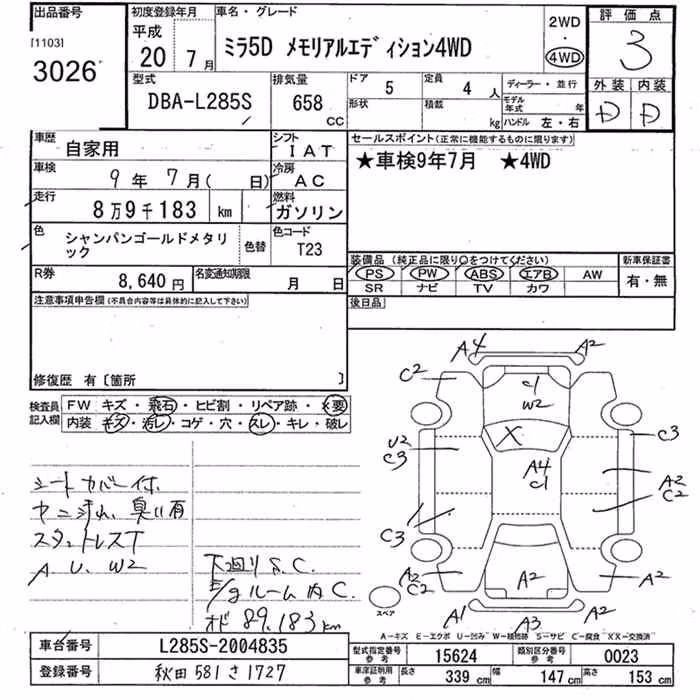 出品番号
[1103]
3026
初度登録年月
平成
20 7月
車名・グレード
ミラ5D メモリアルエディション4WD
2WD
・
4WD
評価点
3
型式
DBA-L285S
排気量
658
CC
ドア 5
定員 4 人
形状
積載
kg
ディーラー・並行
モデル年式 年
ハンドル 左・右
外装 内装
D D
車歴
自家用
シフト
IAT
車検
9 年 7月( 日)
冷房
AC
走行
8万9千183 km
燃料
ガソリン
色
シャンパンゴールドメタリック
色替
色コード
T23
R券
8,640 円
名変通知期限
月 日
セールスポイント(正常に機能するものに限ります)
★車検9年7月 ★4WD
装備品(純正品に限り○をつけてください)
PS PW ABS エアB AW
SR ナビ TV カワ
新車保証書
有・無
後日品
注意事項申告欄(不具合内容等は具体的に記入して下さい)
修復歴 有〔箇所 〕
検査員記入欄
FW キズ・飛石・ヒビ割・リペア跡・X要
内装 キズ・汚レ・コゲ・穴・スレ・キレ・破レ
シートカバー付
ヤニ汚れ、臭い有
スタットレスT
A、U、W2
下廻りS.C.
E/gルーム内C.
オド89,183km
A4 A2
C2
C1
W2
X
U2
C3
C3
A4
C1
A2
C2
C3
A2
C2
A2
A2
A1 A3 A2
スペア
A-キズ E-エクボ U-凹み W-補修跡 S-サビ C-腐食 XX-交換済
車台番号
L285S-2004835
登録番号
秋田 581 さ 1727
型式指定番号 参考
15624
類別区分番号 参考
0023
車庫証明用 参考
長さ 339 cm
幅 147 cm
高さ 153 cm